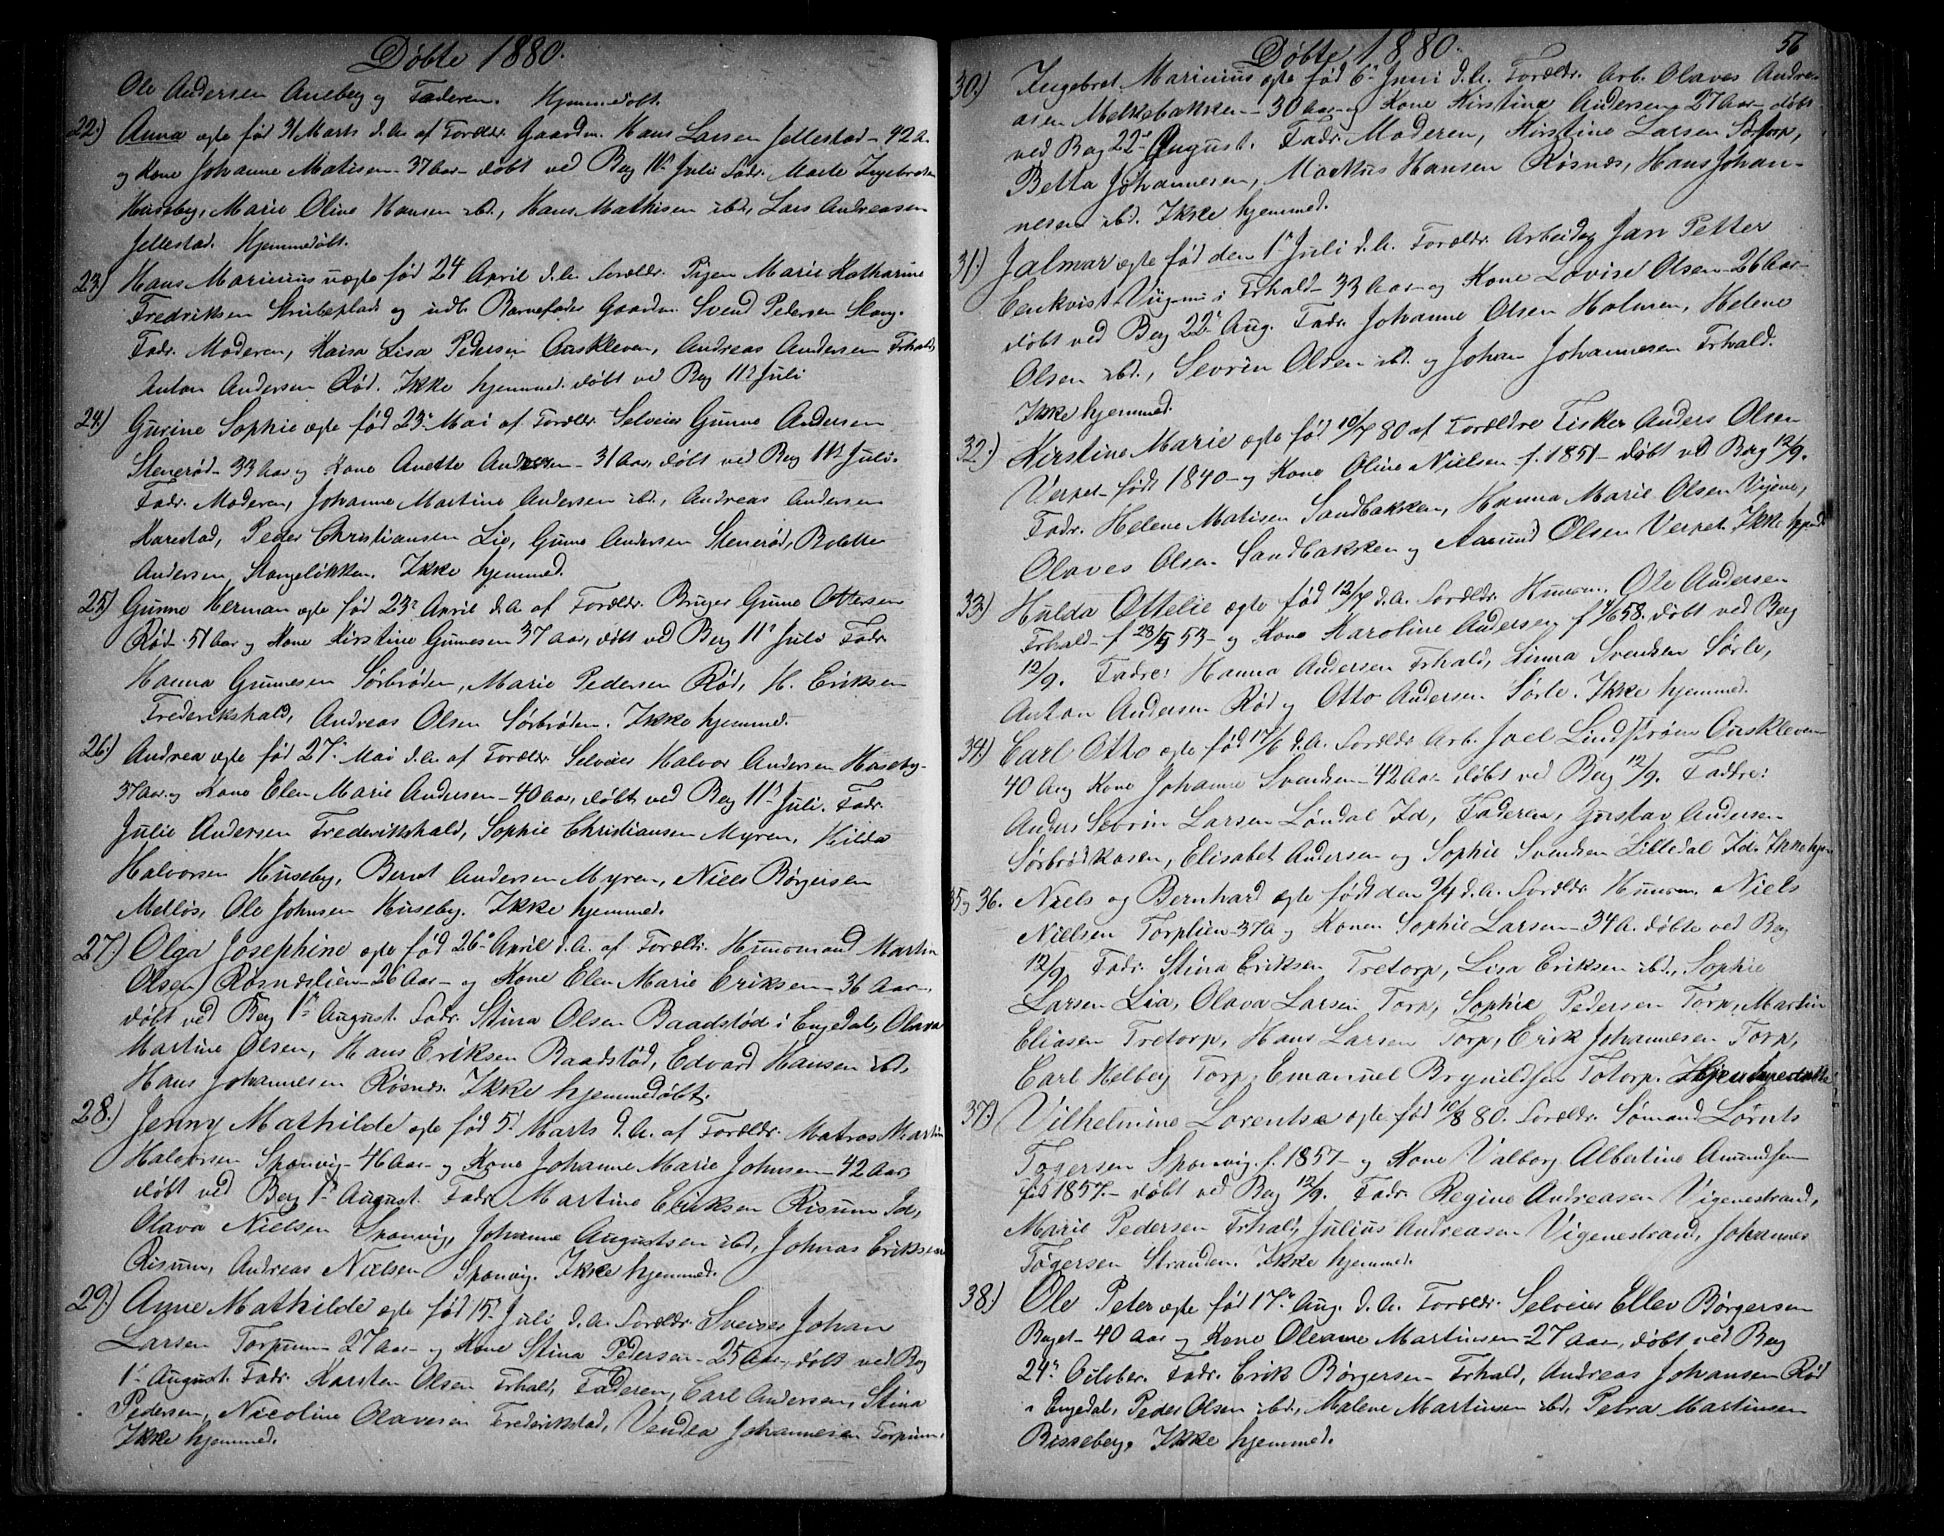 Döbte 1880.
Ole Andersen Aneberg og Faderen. Hjemmedöbt.
22.) Anna ægte född 31 Marts d.A. af Forældr. Gaardm. Hans Larsen Jellestad - 42 A.
og Kone Johanne Matisen - 37 Aar - döbt ved Berg 11te Juli Fadr. Marte Ingebretsen
Huseby, Marie Oline Hansen ibd., Hans Mathisen ibd., Lars Andreasen
Jellestad. Hjemmedöbt.
23.) Hans Marinius uægte fød 24 April d.A. Forældr. Pigen Marie Katharine
Fredriksen Strubeplads og udl. Barnefader Gaardm. Svend Pedersen Skang.
Fadr. Moderen, Kaisa Lisa Pedersen Aaskleven, Andreas Andersen Frhald,
Anton Andersen Rød. Ikke hjemmed. döbt ved Berg 11te Juli
24.) Gurine Sophie ægte fød 23de Mai af Forældr. Selveier Gunne Andersen
Stenerød - 33 Aar og Kone Anette Andersen - 31 Aar, döbt ved Berg 11te Juli.
Fadr. Moderen, Johanne Martine Andersen ibd., Andreas Andersen
Karestad, Peder Christiansen Lie, Gunne Andersen Stenerød, Bolette
Andersen Stangeløkken. Ikke hjemmed.
25.) Gunne Herman ægte fød 23de April d.A. af Forældr. Bruger Gunne Ottersen
Rød - 51 Aar og Kone Kirstine Gunnesen 37 Aar, döbt ved Berg 11te Juli Fadr.
Hanna Gunnesen Sørbrøden, Marie Pedersen Rød, H. Eriksen
Frederikshald, Andreas Olsen Sørbrøden. Ikke hjemmed.
26.) Andrea ægte fød 27de Mai d.A. af Forældr. Selveier Halvor Andersen Huseby -
37 Aar og Kone Elen Marie Andersen - 40 Aar, döbt ved Berg 11te Juli. Fadr.
Julie Andersen Frederikshald, Sophie Christiansen Myren, Hilda
Halvorsen Huseby, Bernt Andersen Myren, Niels Børgersen
Melløs, Ole Johnsen Huseby. Ikke hjemmed.
27.) Olga Josephine ægte fød 26de April d.A. af Forældr. Husmand Martin
Olsen Røsneslien - 26 Aar - og Kone Elen Marie Eriksen - 36 Aar -
döbt ved Berg 1te August. Fadr. Stina Olsen Baadstød i Engedal, Olava
Martine Olsen, Hans Eriksen Baadstød, Edvard Hansen ibd.
Hans Johannesen Røsnes. Ikke hjemmedöbt.
28.) Jenny Mathilde ægte fød 5te Marts d.A. af Forældr. Matros Martin
Halvorsen Sponvig - 46 Aar - og Kone Johanne Marie Johnsen - 42 Aar,
döbt ved Berg 1te August. Fadr. Martine Eriksen Risum Id,
Olava Nielsen Sponvig, Johanne Augustsen ibd., Johnas Eriksen
Risum, Andreas Nielsen Sponvig. Ikke hjemmed.
29.) Anne Mathilde ægte fød 15de Juli d.A. Forældr. Sveiser Johan
Larsen Torpum - 27 Aar - og Kone Stina Pedersen - 25 Aar, döbt ved Berg
1te August. Fadr. Karsten Olsen Frhald, Faderen, Carl Andersen, Stina
Pedersen, Nicoline Olavesen Frederikstad, Vendla Johannesen Torpum.
Ikke hjemmed.
Döbte 1880. 56
30.) Ingebret Marinius ægte fød 6te Juni d.A. Forældr. Arb. Olaves Andre-
asen Melkebakken - 30 Aar - og Kone Kirstine Andersen 27 Aar - døbt
ved Berg 22de August. Fadr. Moderen, Kirstine Larsen
Betta Johannesen, Markus Hansen Røsnes, Hans Johan-
nesen ibd. Ikke hjemmed.
31.) Jalmar ægte fød den 1te Juli d.A. Forældr. Arbeider Jan Petter
Eenkvist Vigene i Frhald - 33 Aar - og Kone Lovise Olsen - 26 Aar -
döbt ved Berg 22de Aug. Fadr. Johanne Olsen Holmen, Helene
Olsen ibd., Sevrin Olsen ibd. og Johan Johannesen Frhald.
Ikke hjemmed.
32.) Kirstine Marie ægte fød 10/7 80 af Forældre Fisker Anders Olsen
Verpet - født 1840 - og Kone Oline Nielsen f. 1851 - döbt ved Berg 12/9.
Fadr. Helene Matisen Sandbakken, Hanna Marie Olsen Vigene,
Olaves Olsen Sandbakken og Amund Olsen Verpet. Ikke hjemd.
33.) Hulda Ottelie ægte fød 12/7 d.A. Forældr. Husm. Ole Andersen
Frhald - f. 23/5 53 - og Kone Karoline Andersen f. 4/6 58. döbt ved Berg
12/9. Fadre: Hanna Andersen Frhald, Anna Svendsen Sørle,
Anton Andersen Rød og Otto Andersen Sørle. Ikke hjemmed.
34.) Carl Otto ægte fød 17/6 d.A. Forældr. Arb. Joel Lindstrøm Aaskleven
40 A og Kone Johanne Svendsen - 42 Aar döbt ved Berg 12/9. Faddre:
Anders Sevrin Larsen Løndal Id, Faderen, Gustav Andersen
Sørbrødkasen, Elisabet Andersen og Sophie Svendsen Lilledal Id. Ikke hjem
35 og 36. Niels og Bernhard ægte født den 9/4 d.A. Forældr. Husm. Niels
Nielsen Torplien - 37 A og Konen Sophie Larsen - 34 A. døbte ved Berg
12/9. Fadr. Stina Eriksen Tretorp, Lisa Eriksen ibd., Sophie
Larsen Lia, Olava Larsen Torp, Sophie Pedersen Torp, Martin
Eliasen Tretorp, Hans Larsen Torp, Erik Johannesen Torp,
Carl Helberg Torp, Emanuel Brynildsen Totorp. Hjemmedöbte
37.) Vilhelmine Lorentse ægte fød 10/8 80. Forældr. Sømand Lørnts
Tøgersen Sponvig f. 1857 - og Kone Valborg Albertine Amundsen
født 1857 - döbt ved Berg 12/9. Fadr. Regine Andreasen Vigenestrand,
Marie Pedersen Frhald, Julius Andreasen Vigenestrand, Johannes
Tøgersen Stranden. Ikke hjemmed.
38.) Ole Peter ægte fød 17de Aug. d.A. Forældr. Selveier Ellev Børgersen
Baget - 40 Aar og Kone Oleane Martinsen - 27 Aar, döbt ved Berg
24de October. Fadr. Erik Børgersen - Frhald, Andreas Johansen Rød
i Engedal, Peder Olsen ibd., Malene Martinsen ibd., Petra Martinsen
Bisseberg. Ikke hjemmed.